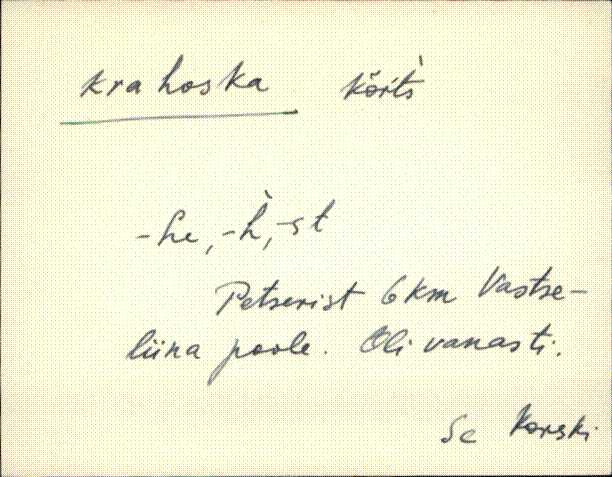 krahoska kõrtś̀
-he, -h̀, -st
Petserist 6 km Vastse-
liina poole. Oli vanasti.
Se Korski